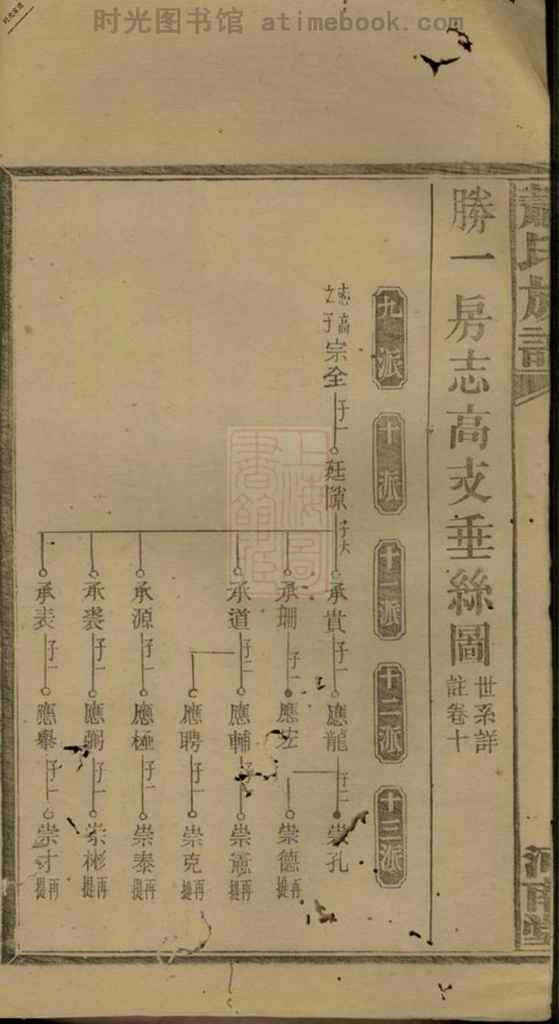 时光图书馆 atimebook.com
蕭氏族譜
河南堂
勝一房志高支垂絲圖
世系詳
註卷十
九派
十派
十一派
十二派
十三派
志高
之子
宗全
子一
廷隙
子六
承貴
子一
應龍
子二
崇孔
崇德
再提
承珊
子一
應宏
承道
子二
應輔
子一
崇簫
再提
應聘
子一
崇克
再提
承源
子一
應極
子一
崇泰
再提
承裘
子一
應弼
子一
崇彬
再提
承表
子一
應舉
子一
崇才
再提
上海圖
書館藏